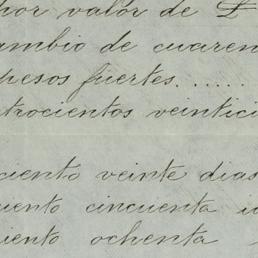 por valor de £
ambio de cuaren
pesos fuertes......
trocientos veintici
ciento veinte dias
uento cincuenta i
iento ochenta